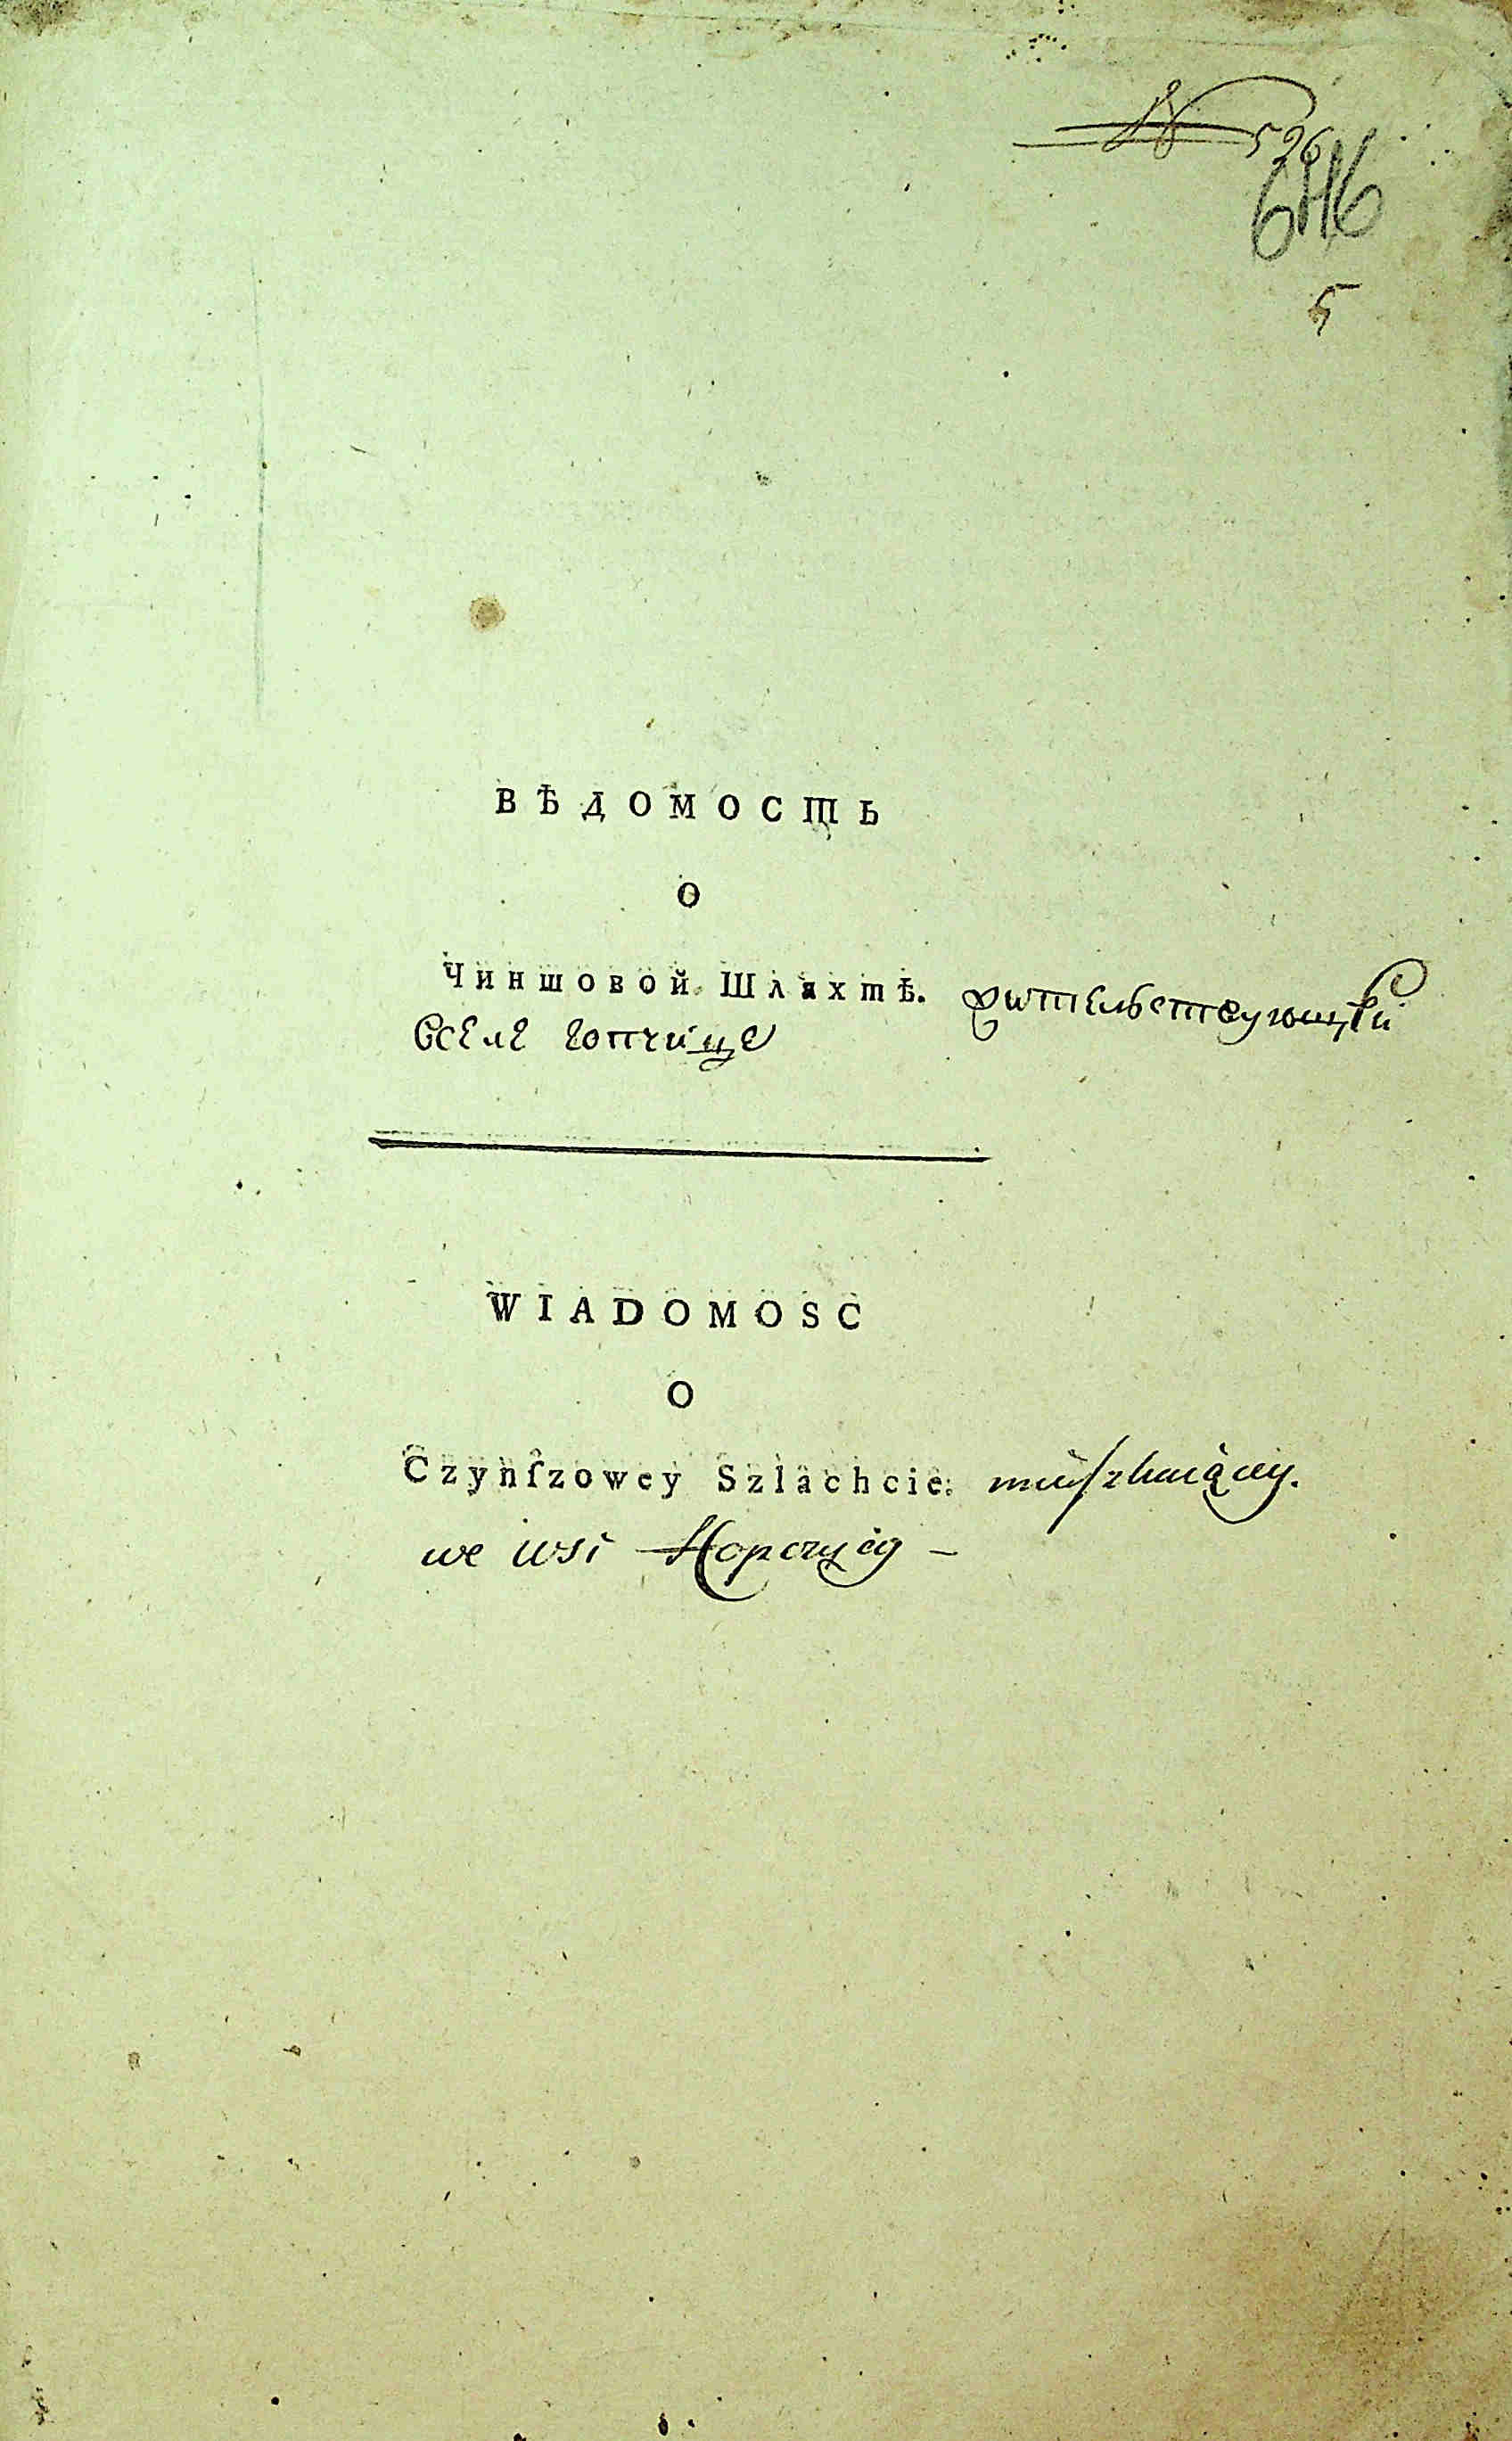 № 526
646
5
ВѢДОМОСТЬ
О
Чиншовой Шляхтѣ. жителствующей
вселе гопчище
WIADOMOSC
O
Czynſzowey Szlachcie. mieſzkaiącey.
we wsi Hopczycy –